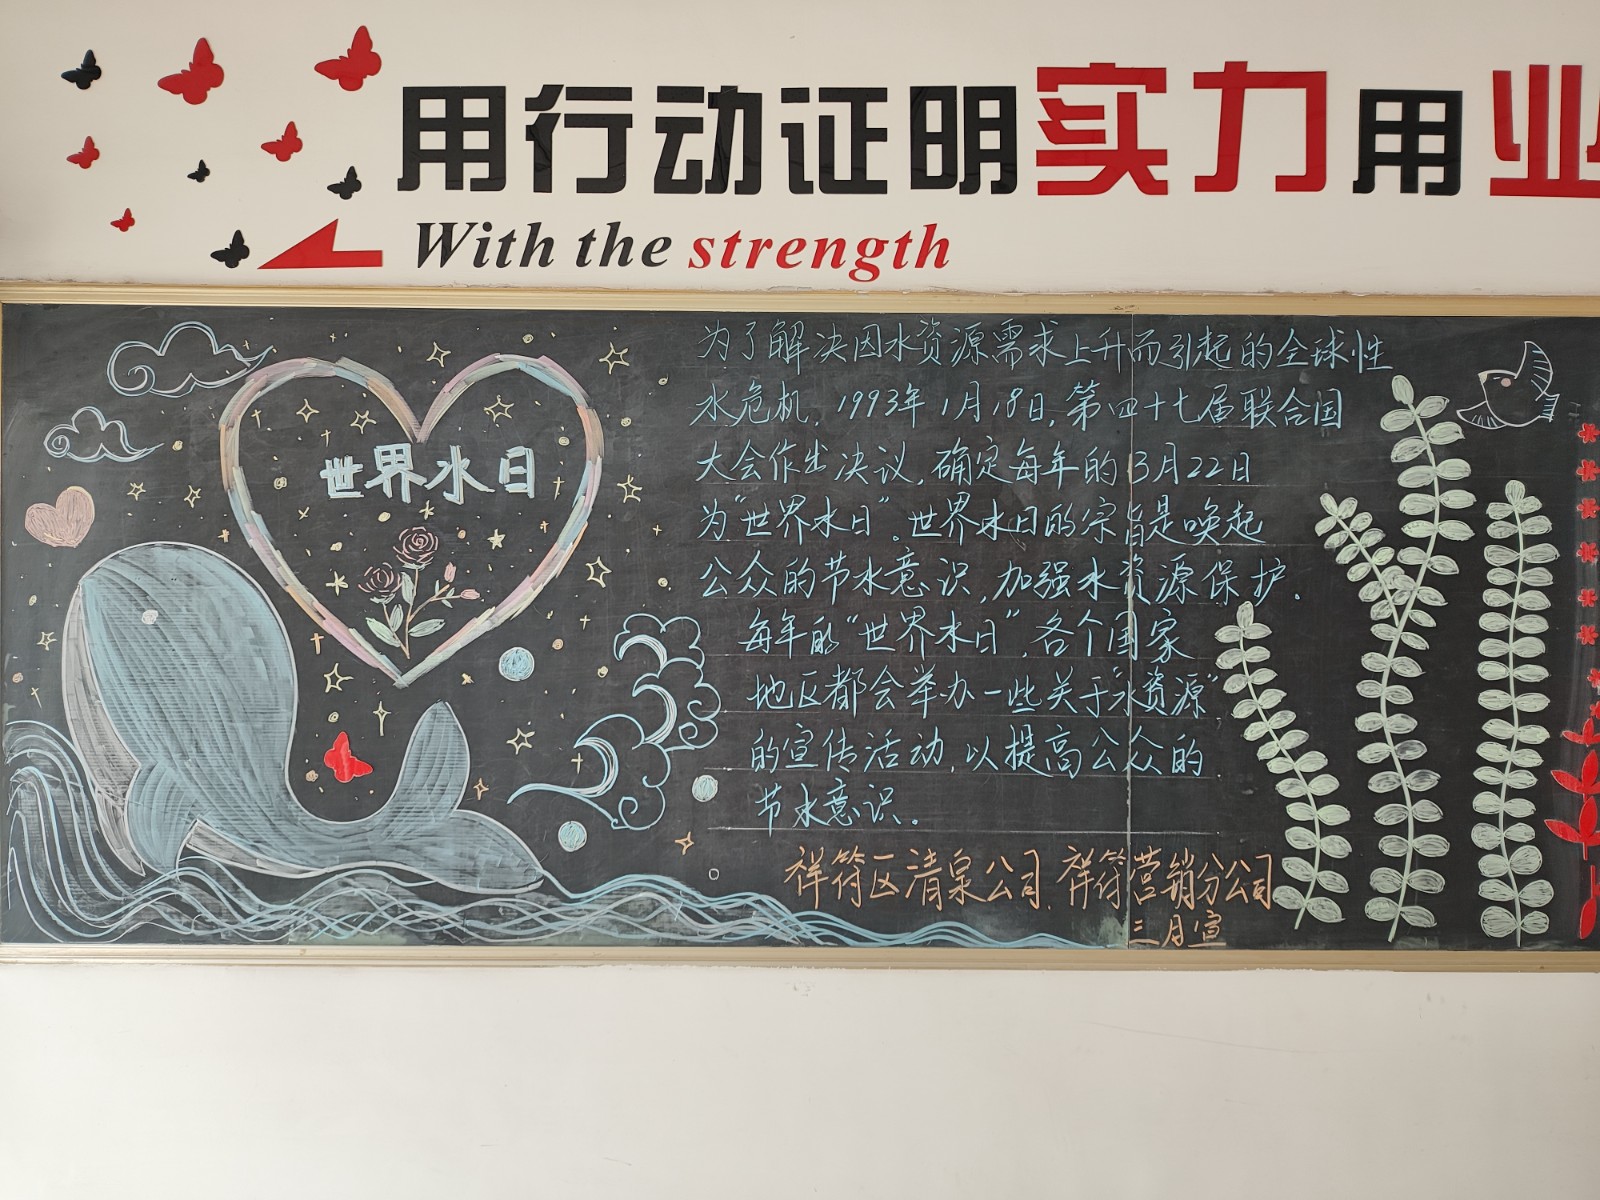 用行动证明实力用业
With the strength
世界水日
为了解决因水资源需求上升而引起的全球性
水危机，1993年1月18日，第四十七届联合国
大会作出决议，确定每年的3月22日
为“世界水日”。世界水日的宗旨是唤起
公众的节水意识，加强水资源保护.
每年的“世界水日”，各个国家
地区都会举办一些关于“水资源”
的宣传活动，以提高公众的
节水意识。
祥符区清泉公司、祥符营销分公司
三月宣